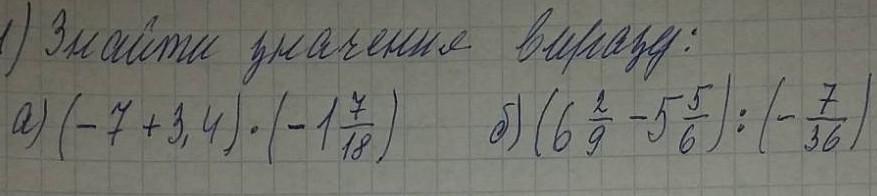 1) Знайти значення виразу:
а) (-7+3,4)·(-1 7/18) б) (6 2/9 - 5 5/6):(- 7/36)